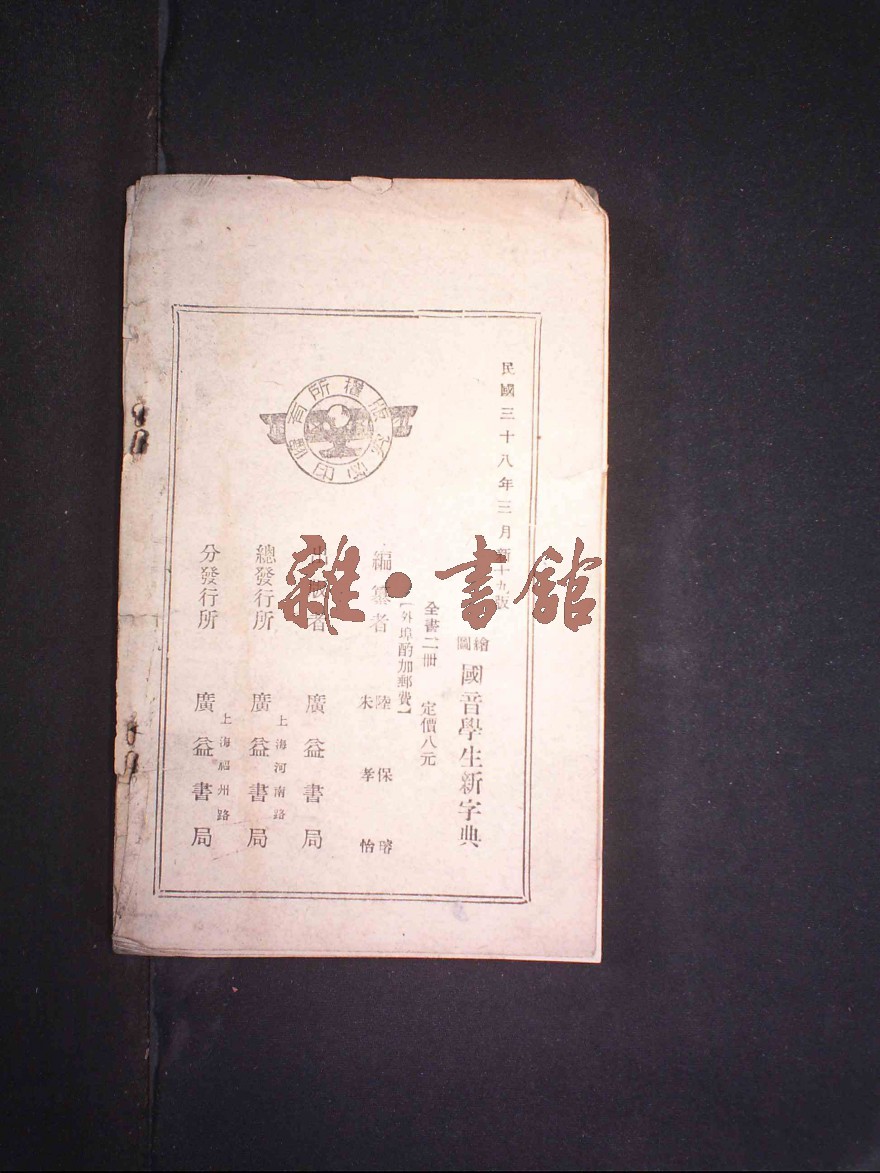 民國三十八年三月新十九版
繪圖 國音學生新字典
全書二册 定價八元
【外埠酌加郵費】
編纂者 陸保璿 朱孝怡
出版者 廣益書局
總發行所 上海河南路 廣益書局
分發行所 上海福州路 廣益書局
版權所有
翻印必究
雜·書館